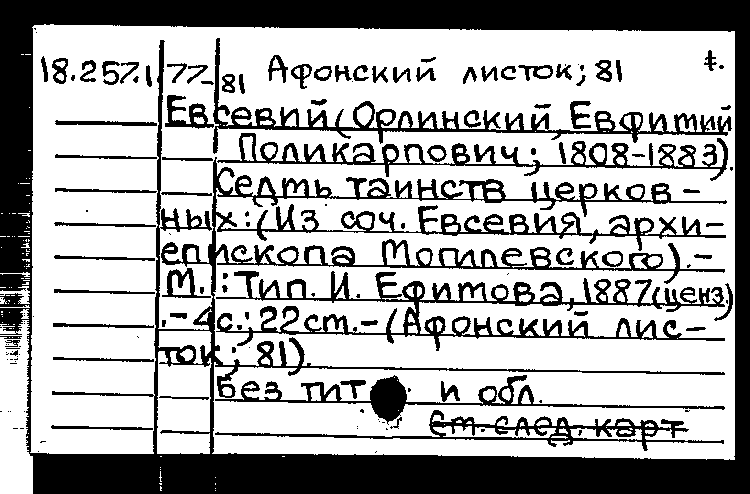 18.257.1 77-81 Афонский листок; 81 1.
Евсевий (Орлинский, Евфимий
Поликарпович; 1808-1883).
Седмь таинств церков-
ных: (Из соч. Евсевия, архи-
епископа Могилевского).-
М.: Тип. И. Ефимова, 1887 (ценз)
.-4с.; 22см.-(Афонский лис-
ток; 81).
Без тит и обл.
См. след. карт